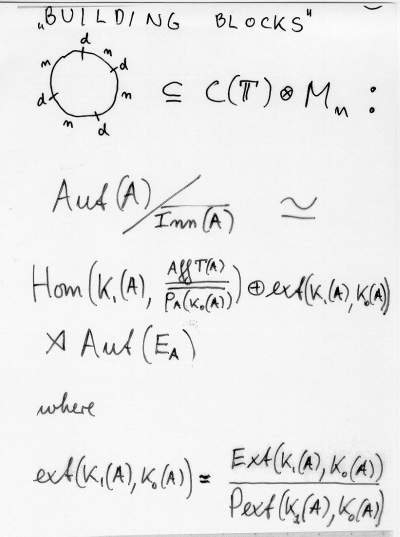 „BUILDING BLOCKS"
d
n n
d
d
n
n
d
⊆ C(𝕋) ⊗ Mₙ :
Aut(A) / Inn(A) ≃
Hom(K₁(A), Aff T(A) / ρ_A(K₀(A))) ⊕ ext(K₁(A), K₀(A))
⋊ Aut(E_A)
where
ext(K₁(A), K₀(A)) ≃ Ext(K₁(A), K₀(A)) / Pext(K₁(A), K₀(A))